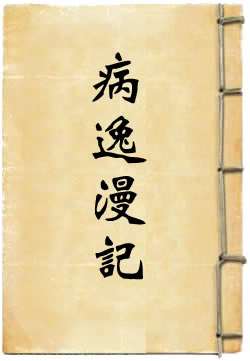 病逸漫記